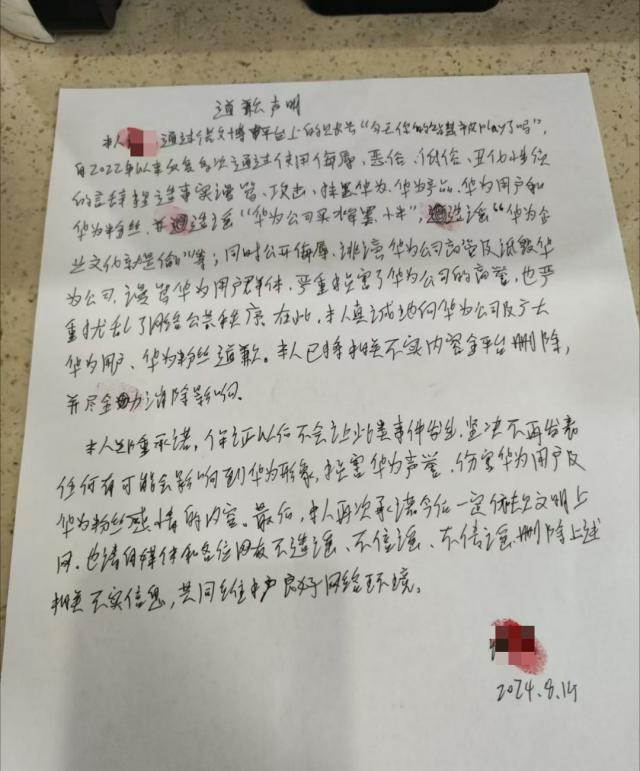 道歉声明
本人 通过微博平台上的账号“今天你的智慧平板play了吗”,
自2022年以来多次通过使用侮辱、恶俗、低俗、丑化性质
的言辞捏造事实谩骂、攻击、抹黑华为、华为产品、华为用户和
华为粉丝,并造谣“华为公司买 黑小米”,造谣“华为企
业文化就是偷”等;同时公开侮辱、诽谤华为公司高管及诋毁华
为公司,谩骂华为用户群体,严重损害了华为公司的商誉,也严
重扰乱了网络公共秩序。在此,本人真诚地向华为公司及广大
华为用户、华为粉丝道歉。本人已将相关不实内容全平台删除,
并尽全力消除影响。
本人郑重承诺,保证以后不会让此类事件发生,坚决不再发表
任何有可能会影响到华为形象,损害华为声誉,伤害华为用户及
华为粉丝感情的内容。最后,本人再次承诺今后一定依法文明上
网,也请自媒体和各位网友不造谣、不信谣、不传谣,删除上述
相关不实信息,共同维护良好网络环境。
2024.8.14